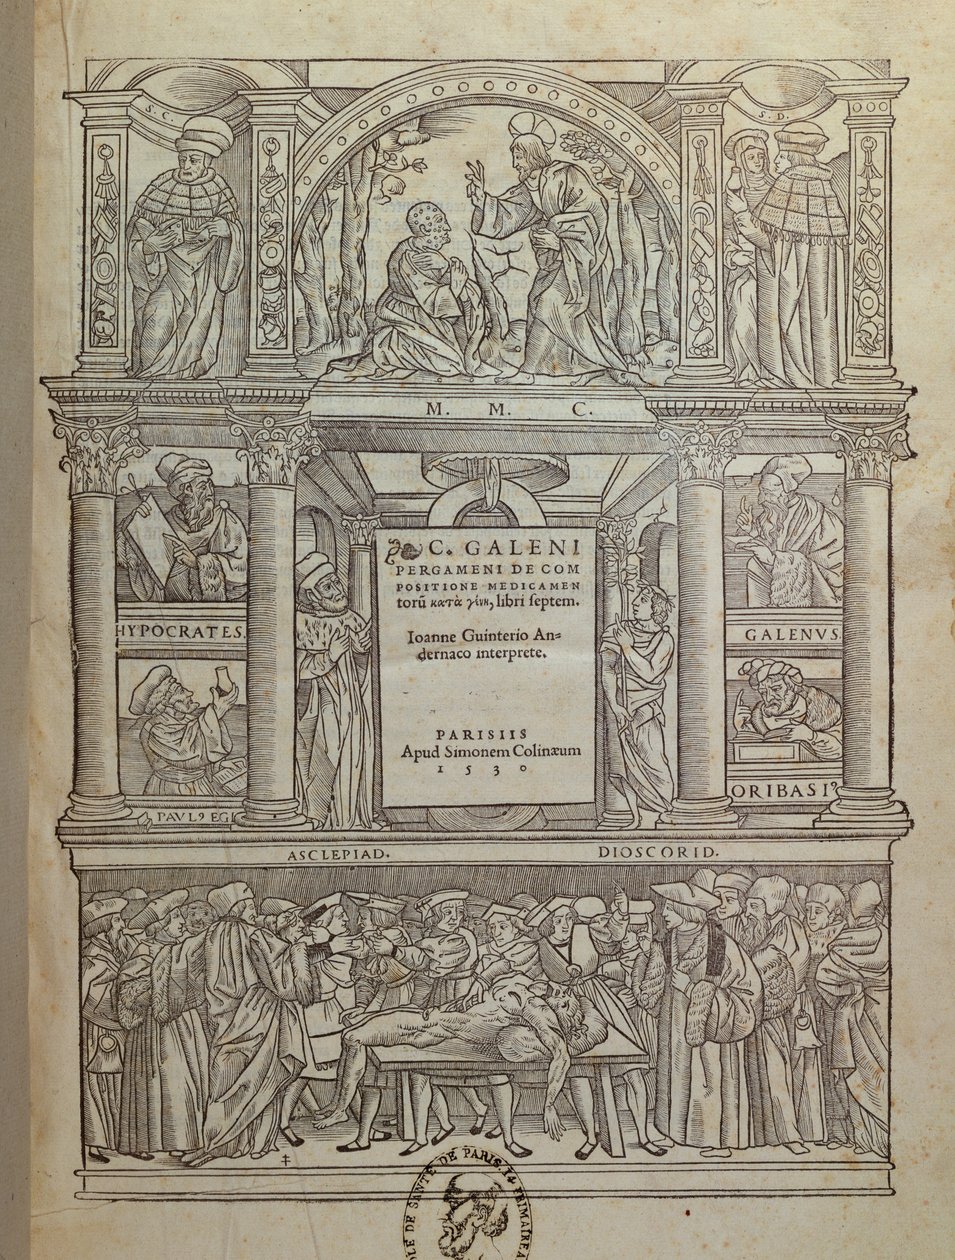 S. C.
S. D.
M. M. C.
C. GALENI
PERGAMENI DE COM
POSITIONE MEDICAMEN
torũ κατὰ γένη, libri septem.
Ioanne Guinterio An=
dernaco interprete.
PARISIIS
Apud Simonem Colinæum
1530
HYPOCRATES.
GALENVS.
PAVL⁹ EGI
ORIBASI⁹
ASCLEPIAD.
DIOSCORID.
DE SANTE DE PARIS. 14 FRIMAIRE AN